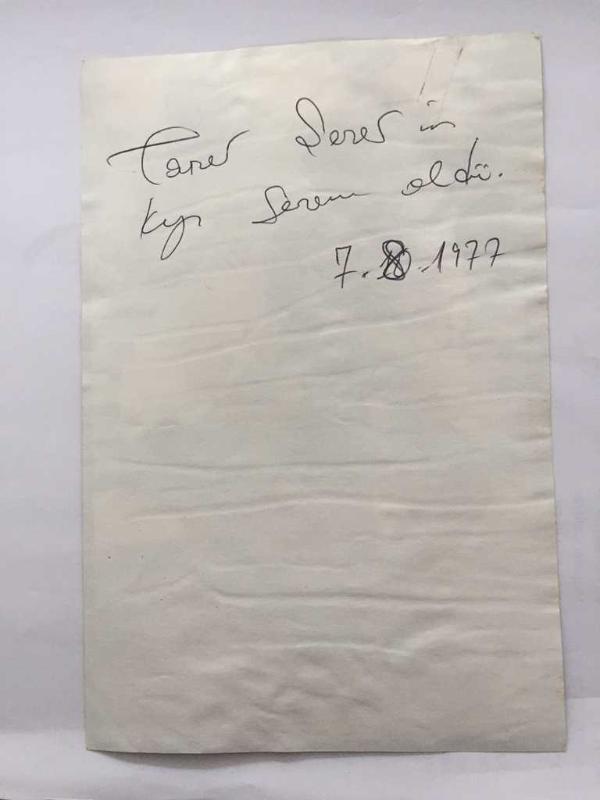 Taner Şener in
kızı Senem oldu.
7.8.1977